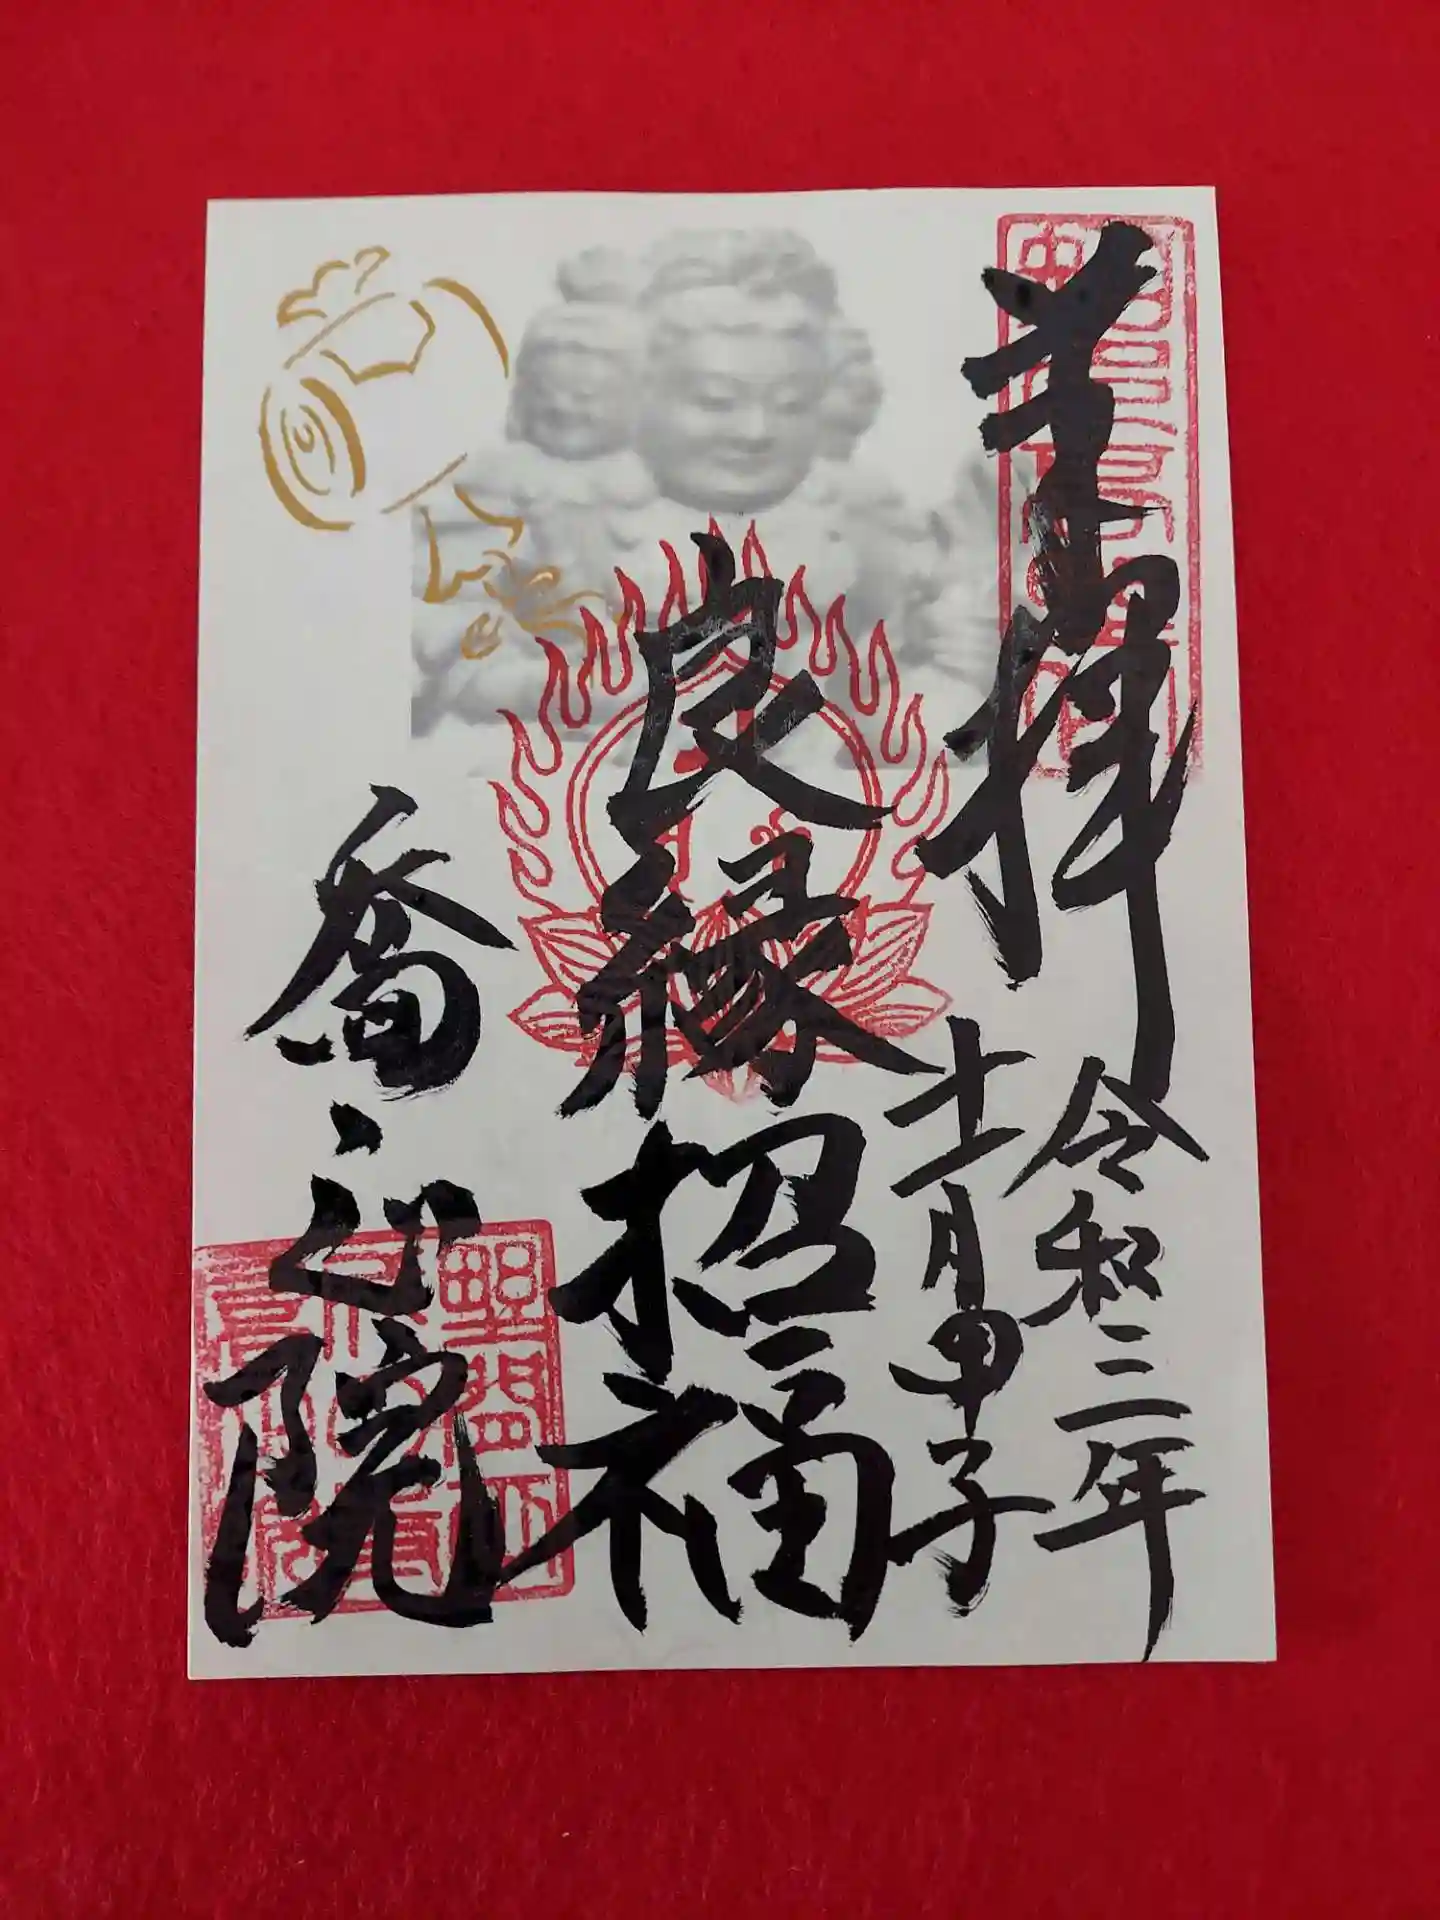 奉拝
令和三年
十一月甲子
良縁招福
院